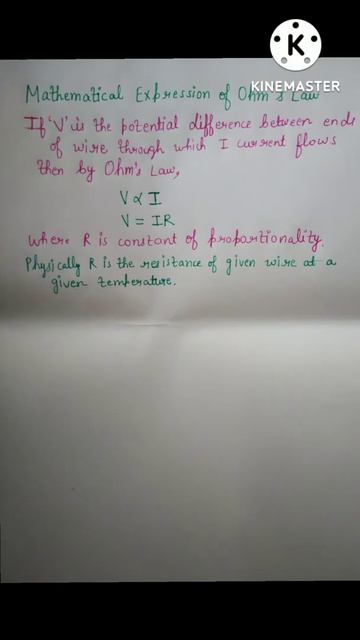 KINEMASTER
Mathematical Expression of Ohm's Law
If 'V' is the potential difference between ends
of wire through which I current flows
then by Ohm's Law,
V ∝ I
V = IR
Where R is constant of proportionality.
Physically R is the resistance of given wire at a
given temperature.